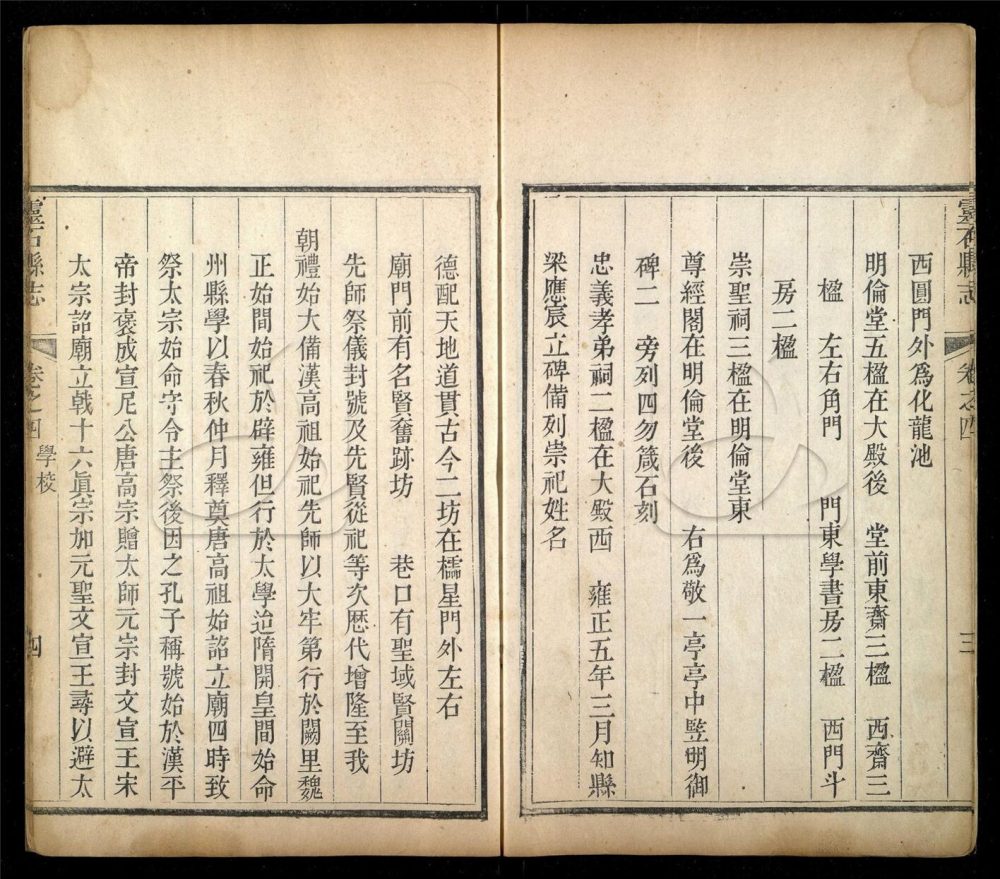 靈石縣志 卷之四 三
西圓門外爲化龍池
明倫堂五楹在大殿後 堂前東齋三楹 西齋三
楹 左右角門 門東學書房二楹 西門斗
房二楹
崇聖祠三楹在明倫堂東
尊經閣在明倫堂後 右爲敬一亭亭中竪明御
碑二 旁列四勿箴石刻
忠義孝弟祠二楹在大殿西 雍正五年三月知縣
梁應宸立碑備列崇祀姓名
德配天地道貫古今二坊在櫺星門外左右
廟門前有名賢奮跡坊 巷口有聖域賢關坊
先師祭儀封號及先賢從祀等次歷代增隆至我
朝禮始大備漢高祖始祀先師以大牢第行於闕里魏
正始間始祀於辟雍但行於太學迨隋開皇間始命
州縣學以春秋仲月釋奠唐高祖始詔立廟四時致
祭太宗始命守令主祭後因之孔子稱號始於漢平
帝封褒成宣尼公唐高宗贈太師元宗封文宣王宋
太宗詔廟立戟十六眞宗加元聖文宣王尋以避太
靈石縣志 卷之四 學校 四